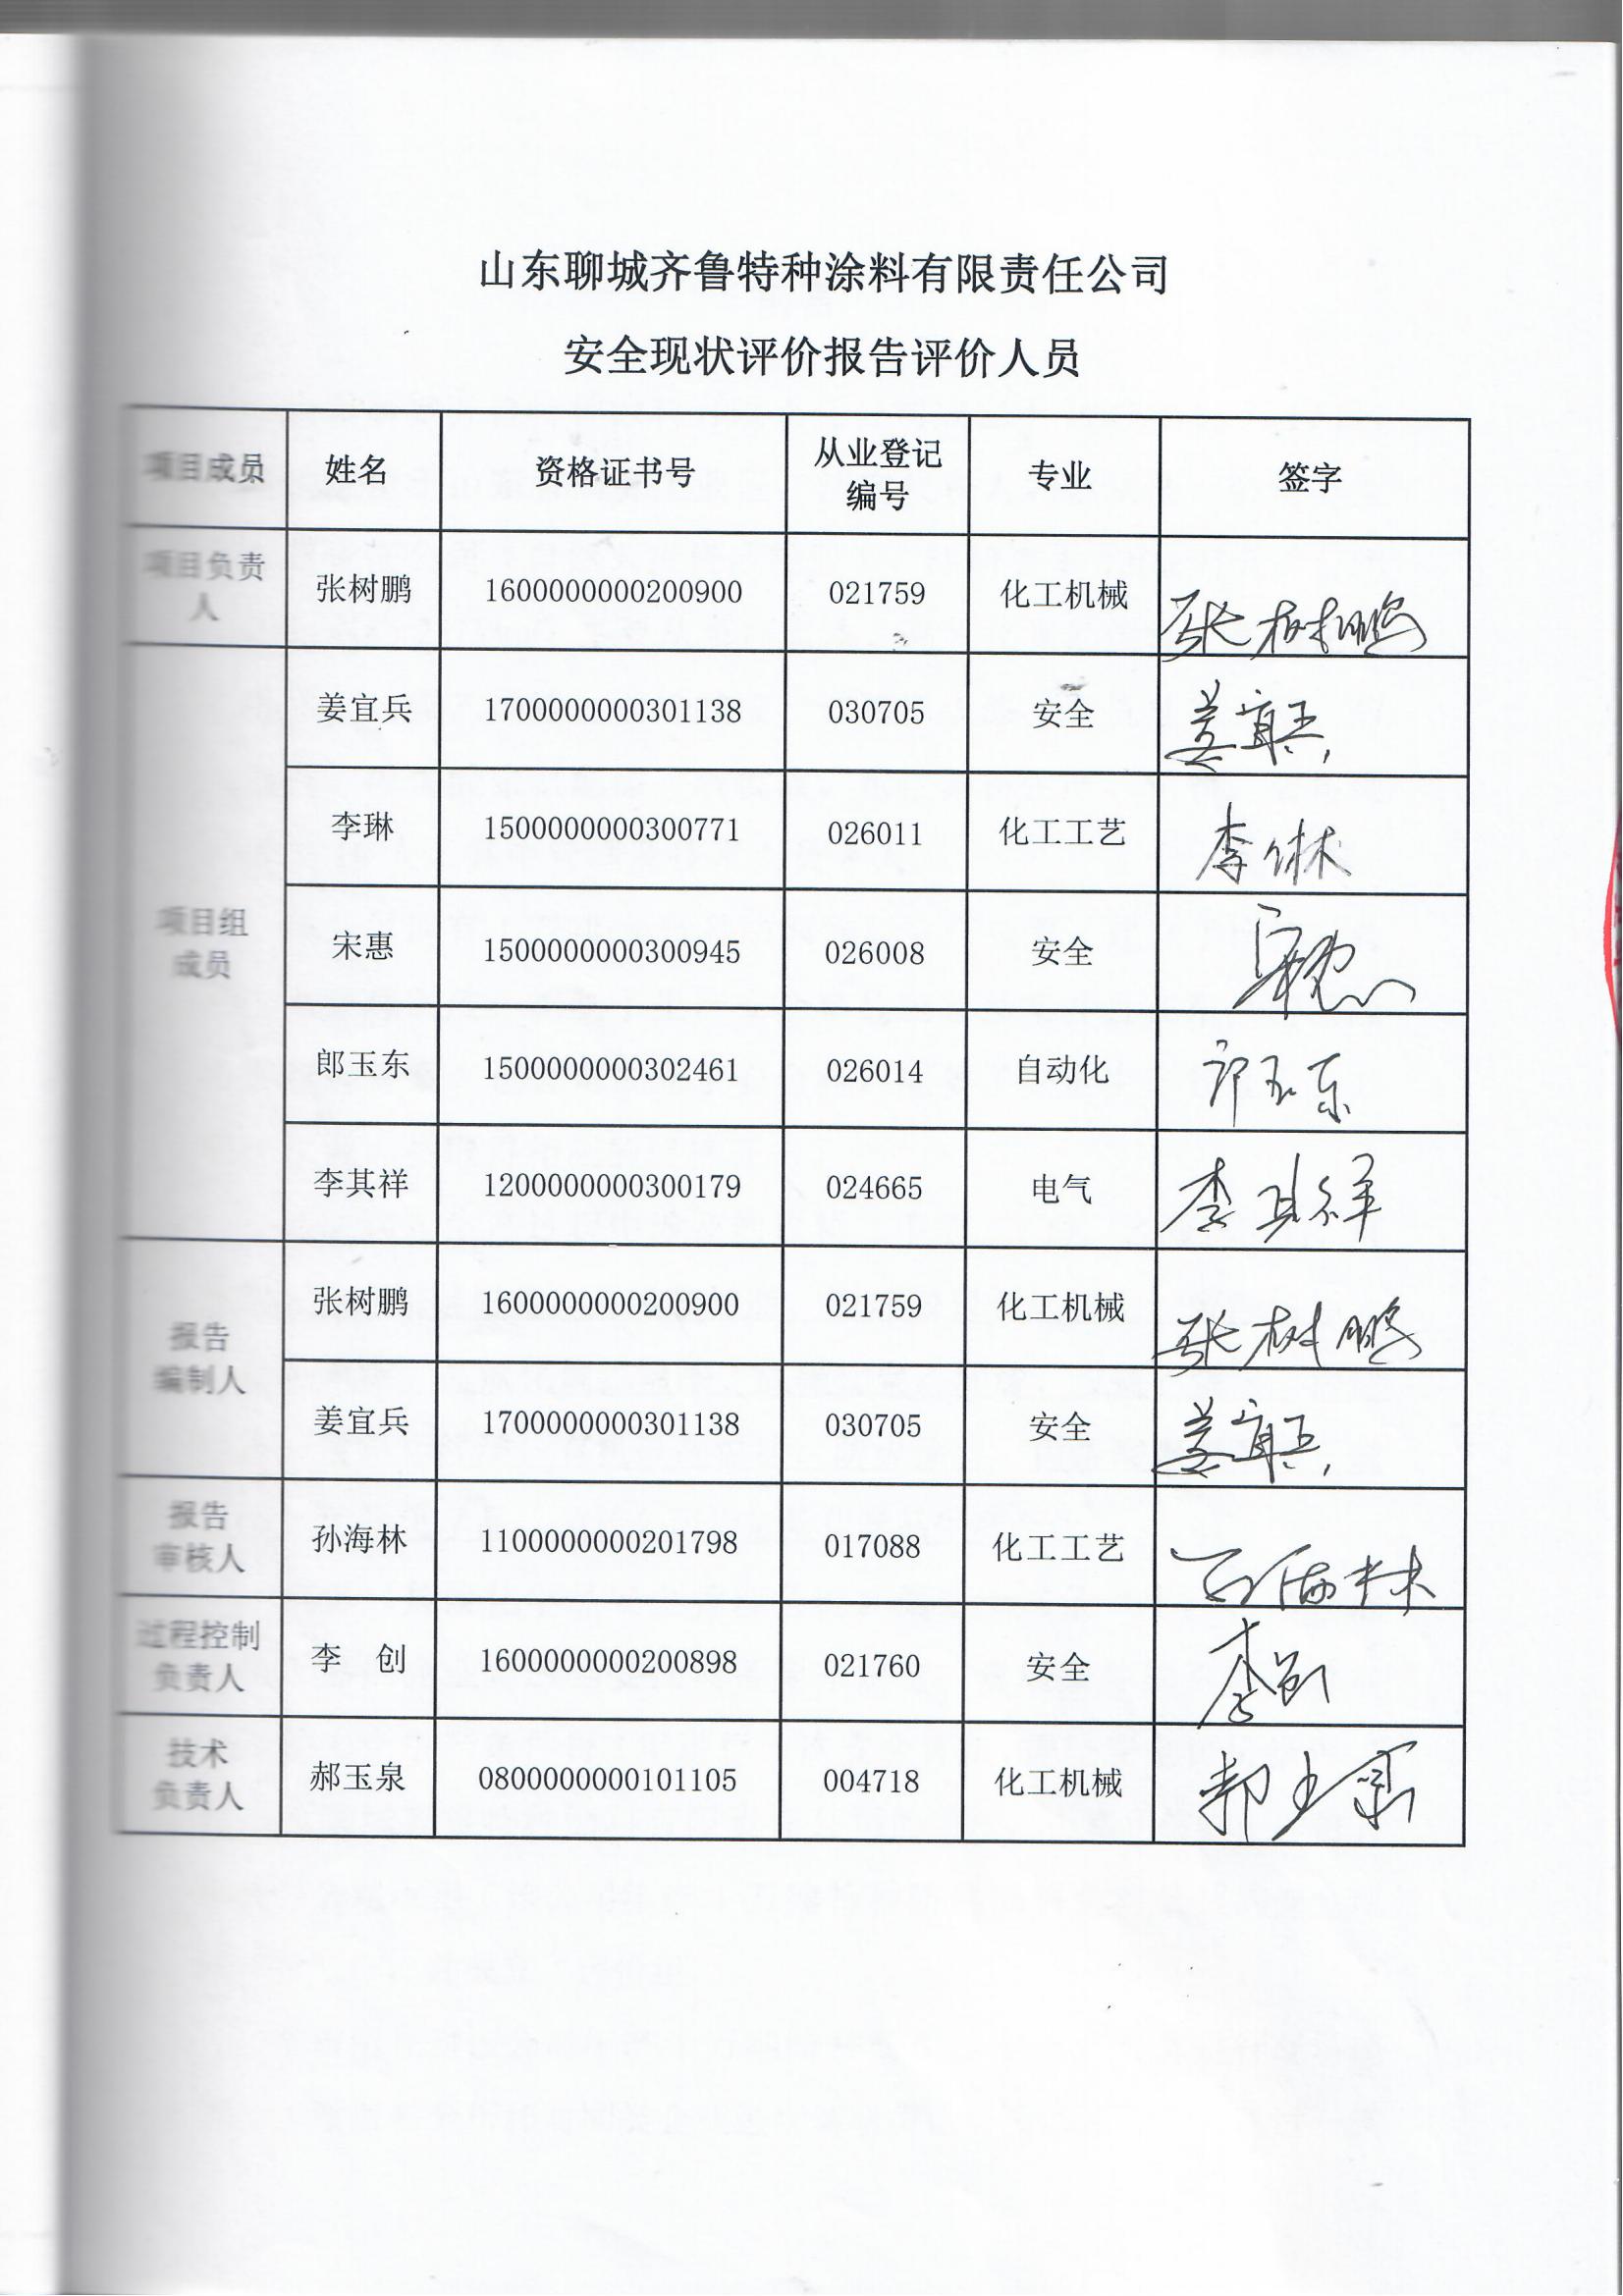 山东聊城齐鲁特种涂料有限责任公司
安全现状评价报告评价人员
项目成员 姓名 资格证书号 从业登记编号 专业 签字
项目负责人 张树鹏 1600000000200900 021759 化工机械 张树鹏
项目组成员 姜宜兵 1700000000301138 030705 安全 姜宜兵
李琳 1500000000300771 026011 化工工艺 李琳
宋惠 1500000000300945 026008 安全 宋惠
郎玉东 1500000000302461 026014 自动化 郎玉东
李其祥 1200000000300179 024665 电气 李其祥
报告编制人 张树鹏 1600000000200900 021759 化工机械 张树鹏
姜宜兵 1700000000301138 030705 安全 姜宜兵
报告审核人 孙海林 1100000000201798 017088 化工工艺 孙海林
过程控制负责人 李 创 1600000000200898 021760 安全 李创
技术负责人 郝玉泉 0800000000101105 004718 化工机械 郝玉泉